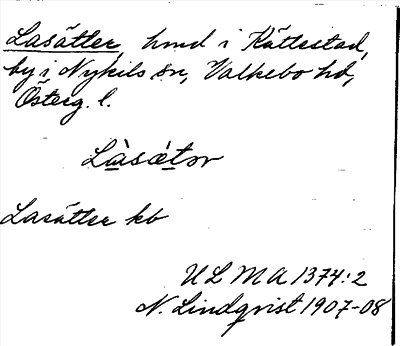 Lasätter, hmd i Kättestad,
by i Nykils sn, Valkebo hd,
Österg. l.
Làsǽtər
Lasätter kb
ULMA 1374:2
N. Lindqvist 1907-08